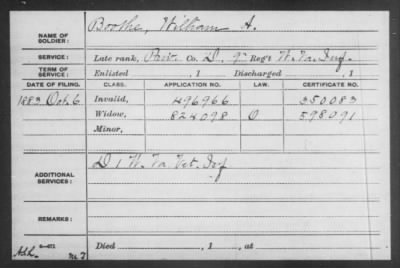 NAME OF SOLDIER: Boothe, William A.
SERVICE: Late rank, Priv. Co. D, 9" Reg't W. Va. Inf.
TERM OF SERVICE: Enlisted , 1 Discharged , 1
DATE OF FILING. CLASS. APPLICATION NO. LAW. CERTIFICATE NO.
1883 Oct. 6 Invalid, 496966 350083
Widow, 824098 O. 598091
Minor,
ADDITIONAL SERVICES: D 1 W. Va Vet. Inf
REMARKS:
Died , 1 , at